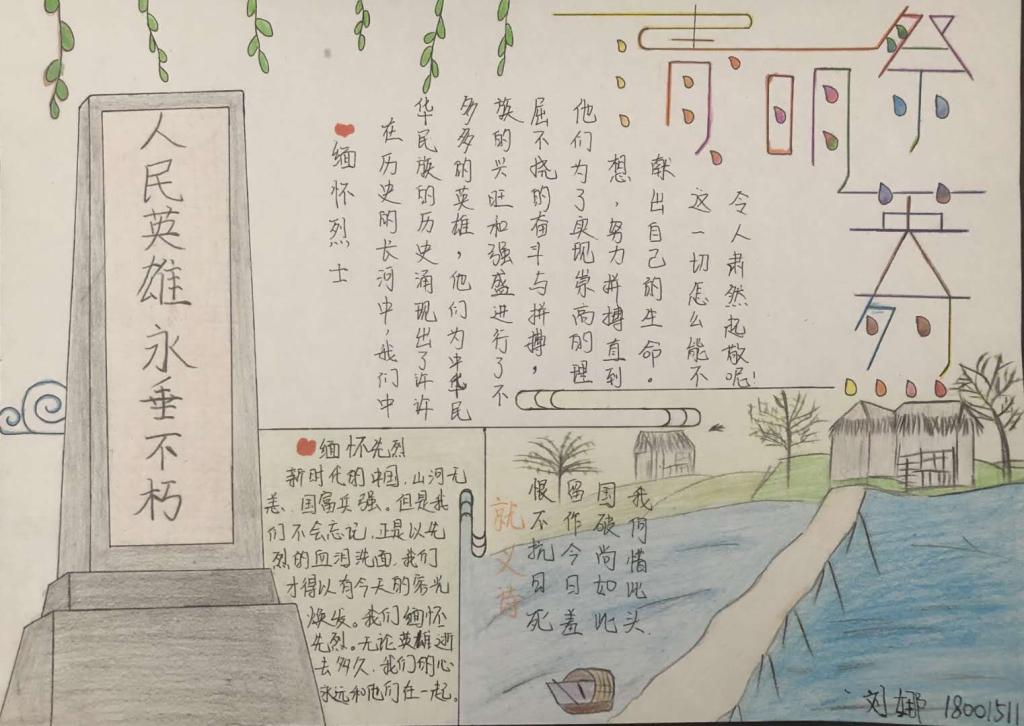 清明祭
英烈
人民英雄永垂不朽
缅怀烈士
在历史的长河中,我们中
华民族的历史涌现出了许许
多多的英雄,他们为中华民
族的兴旺和强盛进行了不
屈不挠的奋斗与拼搏,
他们为了实现崇高的理
想,努力拼搏直到
献出自己的生命。
这一切怎么能不
令人肃然起敬呢!
缅怀先烈
新时代的中国,山河无
恙、国富兵强。但是我
们不会忘记,正是以先
烈的血泪洗面,我们
才得以有今天的容光
焕发。我们缅怀
先烈。无论英雄逝
去多久,我们的心
永远和他们在一起。
就义诗
恨不抗日死
留作今日羞
国破尚如此
我何惜此头.
刘娜 18001511